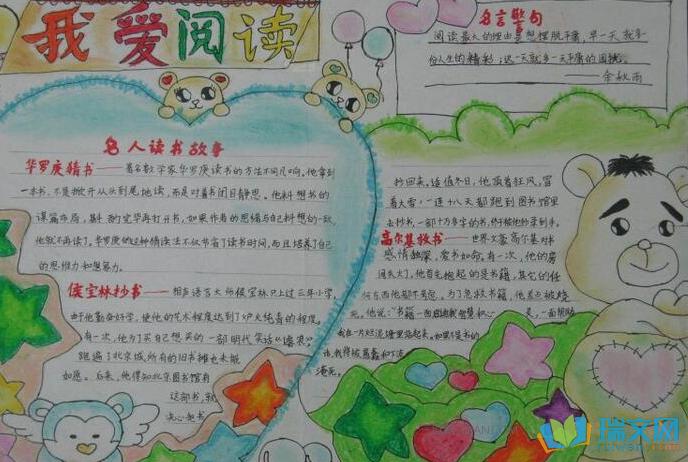 我爱阅读
名言警句
阅读最大的理由是想摆脱平庸，早一天就多
一份人生的精彩；迟一天就多一天平庸的困扰。
——余秋雨
名人读书故事
华罗庚猜书——著名数学家华罗庚读书的方法不同凡响。他拿到
一本书，不是掀开从头到尾地读，而是对着书闭目静思。他料想书的
谋篇布局，斟酌完毕再打开书，如果作者的思绪与自己料想的一致，
他就不再读了。华罗庚的这种猜读法不仅节省了读书时间，而且培养了自己
的思维力和想象力。
侯宝林抄书——相声语言大师侯宝林只上过三年小学，
由于他勤奋好学，使他的艺术程度达到了炉火纯青的程度。
有一次，他为了买自己想买的一部明代笑话《谑浪》
跑遍了北京城所有的旧书摊也未能
如愿。后来，他得知北京图书馆有
这部书，就
决心把书
抄回来。适值冬日，他顶着狂风，冒
着大雪，一连十八天都跑到图书馆里
去抄书，一部十万多字的书，终于被他抄录到手。
高尔基救书——世界文豪高尔基对书
感情独深，爱书如命。有一次，他的房
间失火了，他首先抱起的是书籍，其它的任
何东西他都不考虑。为了急救书籍，他差点被烧
死。他说："书籍一面启示着我的智慧和心
是，一面帮助
我在一片烂泥塘里站起来。如果不是书的
话，我得被愚蠢和下流
淹死。
瑞文网